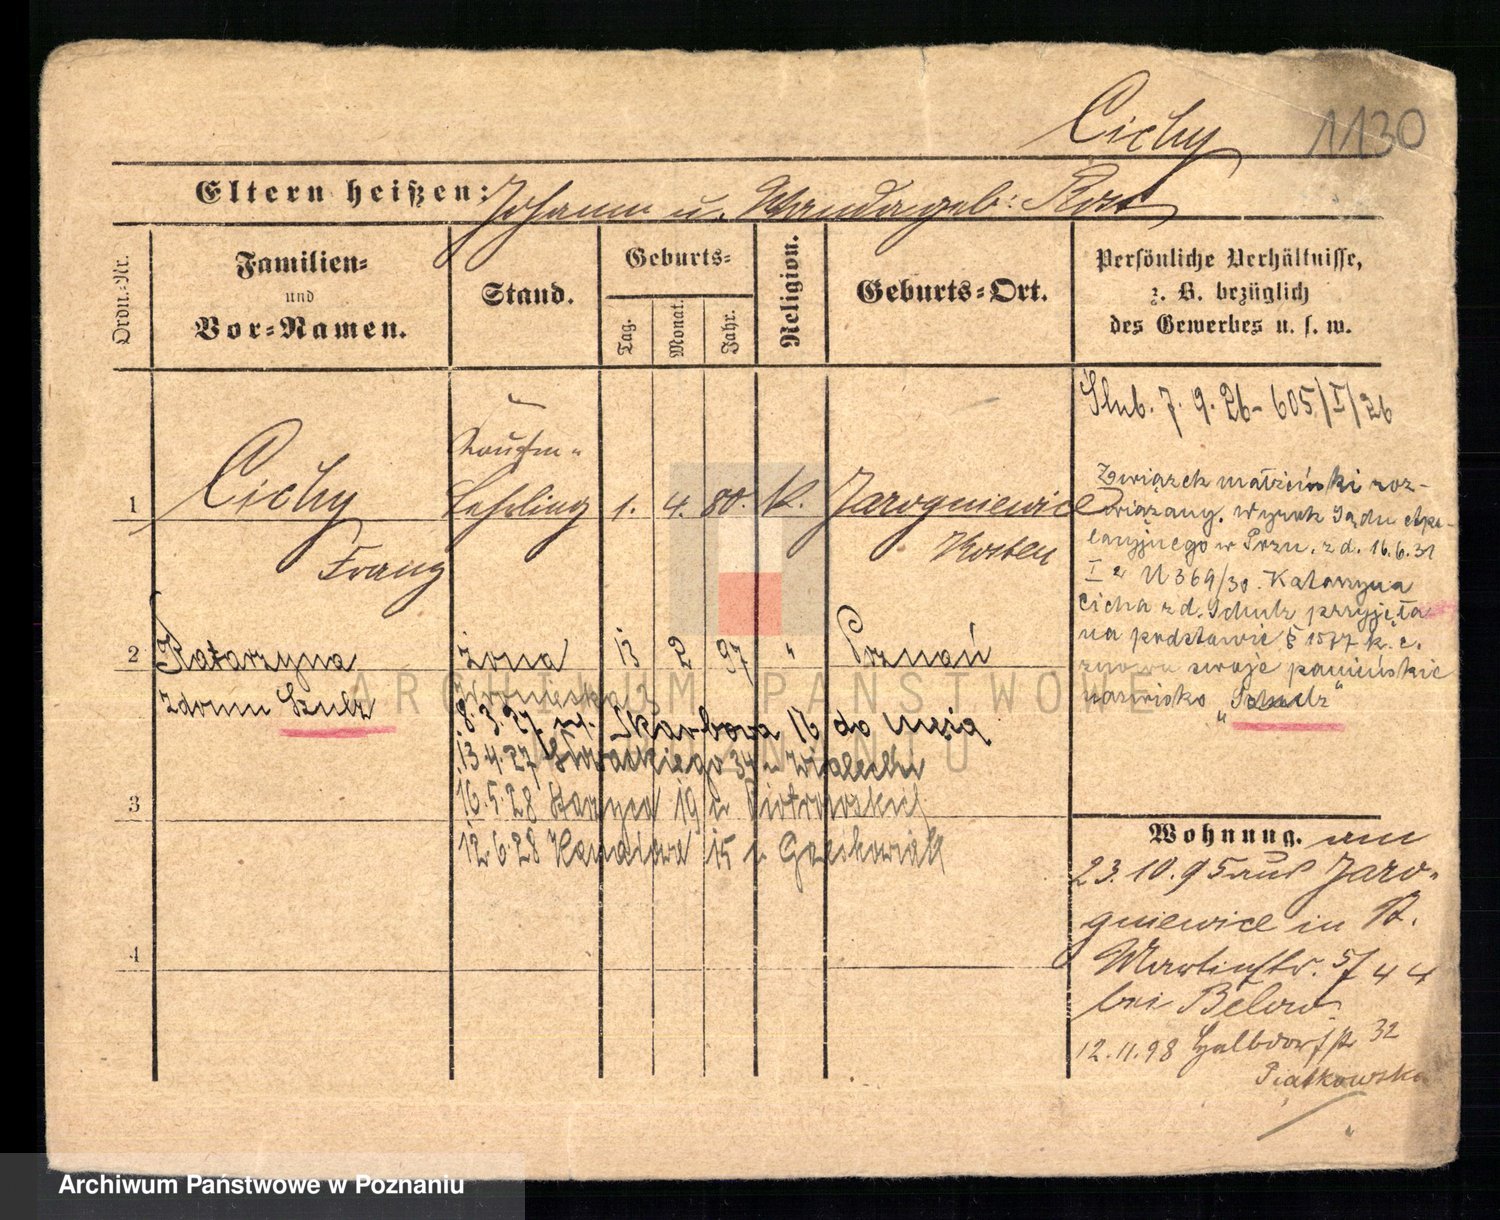 Cichy
1130
Eltern heißen: Johann u. Wanda geb: Rost
Ordn.-Nr.
Familien-
und
Vor-Namen.
Stand.
Geburts-
Tag.
Monat.
Jahr.
Religion.
Geburts-Ort.
Persönliche Verhältnisse,
z. B. bezüglich
des Gewerbes u. s. w.
1
Cichy
Franz
Kaufm-
Lehrling
1. 4. 80. k.
Jarogniewice
Kosten
Ślub. 7. 9. 26 - 605/I/26
Związek małżeński roz-
wiązany. Wyrok Sądu Ape-
lacyjnego w Pozn. z d. 16.6.31
U 369/30. Katarzyna
Cicha z d. Schulz przyjęła
na podstawie § 1577 k. c.
znowu swoje panieńskie
nazwisko „Schulz"
2
Katarzyna
z domu Szulz
żona
13 2 97 "
Poznań
8.3.27 Skarbowa 16 do
13.4.27 34
3
16.5.28 19 u Piotrowski
12.6.28 15 u
4
Wohnung. am
23.10.95 aus Jaro-
gniewice in St.
Martinstr. 5/44
bei Below
12.11.98 Halbdorfstr 32
Piątkowska
ARCHIWUM PAŃSTWOWE
W POZNANIU
Archiwum Państwowe w Poznaniu